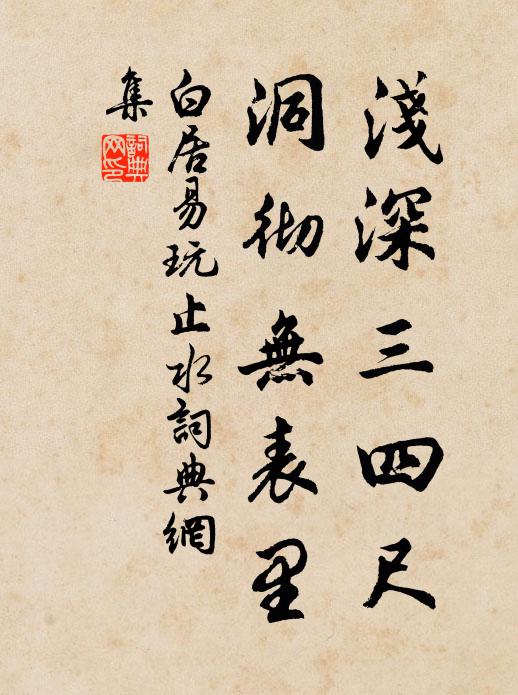 淺深三四尺
洞彻無表里
白居易玩止水詞典網
集
詞典
网印